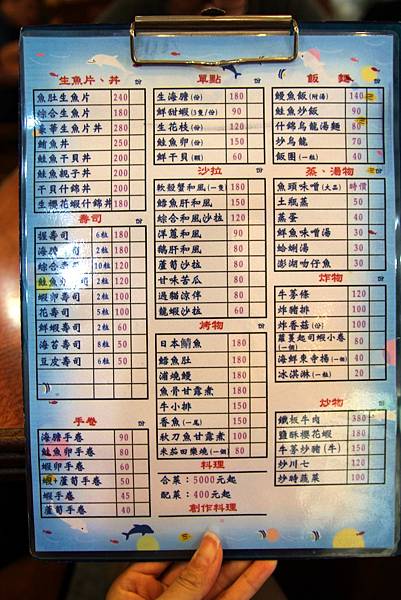 生魚片、丼 份
魚肚生魚片 240
綜合生魚片 180
豪華生魚片 280
鮪魚丼 180
鮭魚干貝丼 180
鮭魚親子丼 180
干貝什錦丼 180
生櫻花蝦什錦丼 180
壽司 份
握壽司 6粒 180
海膽壽司 6粒 180
綜合壽司 10粒 120
鮭魚壽司 12粒
蝦卵壽司 6粒 100
花壽司 5粒 100
鮮蝦壽司 2粒 60
海苔壽司 8粒 50
豆皮壽司 6粒 50
手卷 份
海膽手卷 90
鮭魚卵手卷 80
蝦卵手卷 60
蝦+蘆筍手卷 50
蝦手卷 45
蘆筍手卷 40
單點 份
生海膽(份) 180
鮮甜蝦(3隻/份) 90
生花枝(份) 120
鮭魚卵(份) 150
鮮干貝(顆) 60
沙拉 份
軟殼蟹和風(一隻) 180
鱈魚肝和風 150
綜合和風沙拉 120
洋蔥和風 90
鵝肝和風 80
蘆筍沙拉 80
甘味苦瓜 80
過貓涼伴 80
龍蝦沙拉 60
烤物 份
日本鯖魚 180
鱈魚肚 180
蒲燒鰻 180
魚骨甘露煮 180
牛小排 150
香魚(一尾) 150
秋刀魚甘露煮 100
米茄田樂燒(一個) 80
料理
合菜：5000元起
配菜：400元起
創作料理
飯麵 份
鰻魚飯(附湯) 140
鮭魚炒飯 90
什錦烏龍湯麵 80
炒烏龍 70
飯團(一粒) 40
蒸、湯物 份
魚頭味噌(大品) 時價
土瓶蒸 50
蒸蛋 40
鮮魚味噌湯 30
蛤蜊湯 30
澎湖吻仔魚 30
炸物 份
牛蒡條 120
炸豬排 100
炸香菇(份) 100
蘿蔓起司蝦小卷(一個) 80
海鮮東寺揚(一個) 40
冰淇淋(一粒) 20
炒物 份
鐵板牛肉 380
鹽酥櫻花蝦 180
牛蒡炒豬(牛) 150
炒川七 120
炒時蔬菜 100